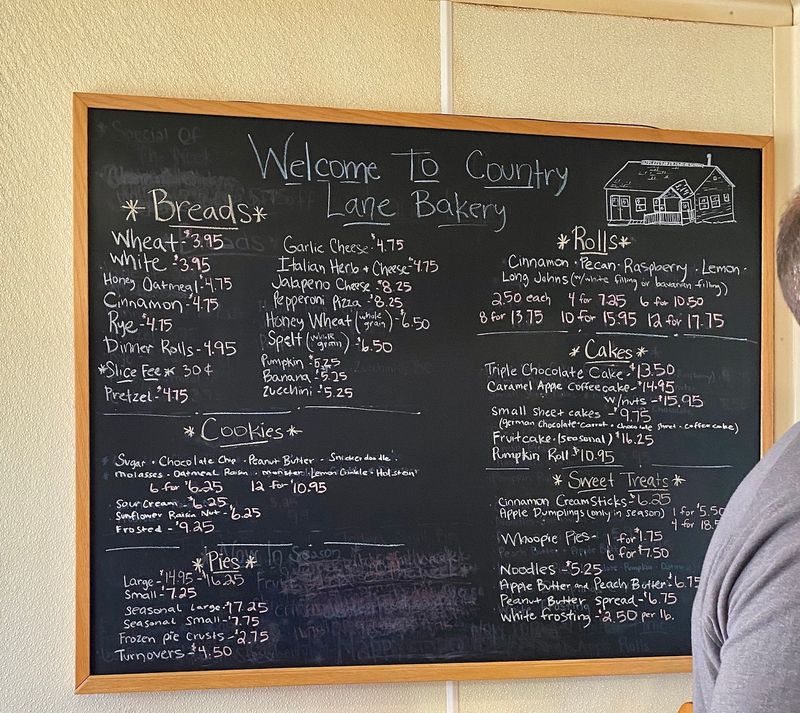 Welcome To Country
Lane Bakery
*Breads*
Wheat - $3.95
White - $3.95
Honey Oatmeal - 4.75
Cinnamon - $4.75
Rye - $4.75
Dinner Rolls - 4.95
*Slice Fee* 30¢
Pretzel - $4.75
Garlic Cheese - $4.75
Italian Herb + Cheese - $4.75
Jalapeno Cheese - $8.25
Pepperoni Pizza - $8.25
Honey Wheat (whole grain) - $6.50
Spelt (whole grain) - $6.50
Pumpkin - $5.25
Banana - $5.25
Zucchini - $5.25
*Cookies*
Sugar · Chocolate Chip · Peanut Butter · Snickerdoodle ·
molasses · Oatmeal Raisin · monster · Lemon Crinkle · Holstein
6 for $6.25 12 for $10.95
Sour Cream - $6.25
Sunflower Raisin Nut - $6.25
Frosted - $9.25
*Pies*
Large - $14.95 - $16.25
Small - 7.25
Seasonal Large - $17.25
Seasonal Small - $7.75
Frozen pie crusts - $2.75
Turnovers - $4.50
*Rolls*
Cinnamon · Pecan · Raspberry · Lemon ·
Long Johns (w/white filling or bavarian filling)
2.50 each 4 for 7.25 6 for 10.50
8 for 13.75 10 for 15.95 12 for 17.75
*Cakes*
Triple Chocolate Cake - $13.50
Caramel Apple Coffeecake - $14.95
w/nuts - $15.95
Small sheet cakes - $9.75
(german chocolate · carrot · chocolate sheet · coffee cake)
Fruitcake (seasonal) $16.25
Pumpkin Roll $10.95
*Sweet Treats*
Cinnamon CreamSticks - $6.25
Apple Dumplings (only in season) 1 for $5.50
4 for 18.5
Whoopie Pies - 1 for $1.75
6 for $7.50
Noodles - $5.25
Apple Butter and Peach Butter - $6.75
Peanut Butter Spread - $6.75
White frosting - $2.50 per lb.